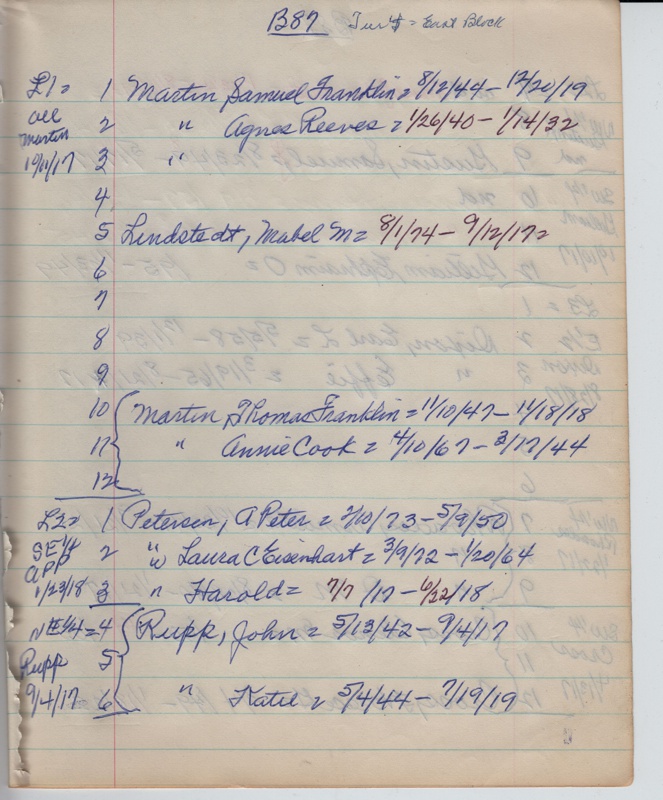 B87 = East Block
L1 = 1 Martin, Samuel Franklin = 8/12/44 - 12/20/19
all 2 " Agnes Reeves = 1/26/40 - 1/14/32
Martin
10/11/17 3 "
4
5 Lindstedt, Mabel M = 8/1/74 - 9/12/17 =
6
7
8
9
10 Martin, Thomas Franklin = 11/10/47 - 11/18/18
11 " Annie Cook = 4/10/67 - 3/17/44
12
L2 = 1 Petersen, A Peter = 2/10/73 - 5/9/50
SE 1/4 2 " w Laura C Eisenhart = 3/9/72 - 1/20/64
APP
1/23/18 3 " Harold = 7/7/17 - 6/22/18
NE 1/4 = 4 Rupp, John = 5/13/42 - 9/4/17
Rupp 5
9/4/17 6 " Katie = 5/4/44 - 7/19/19